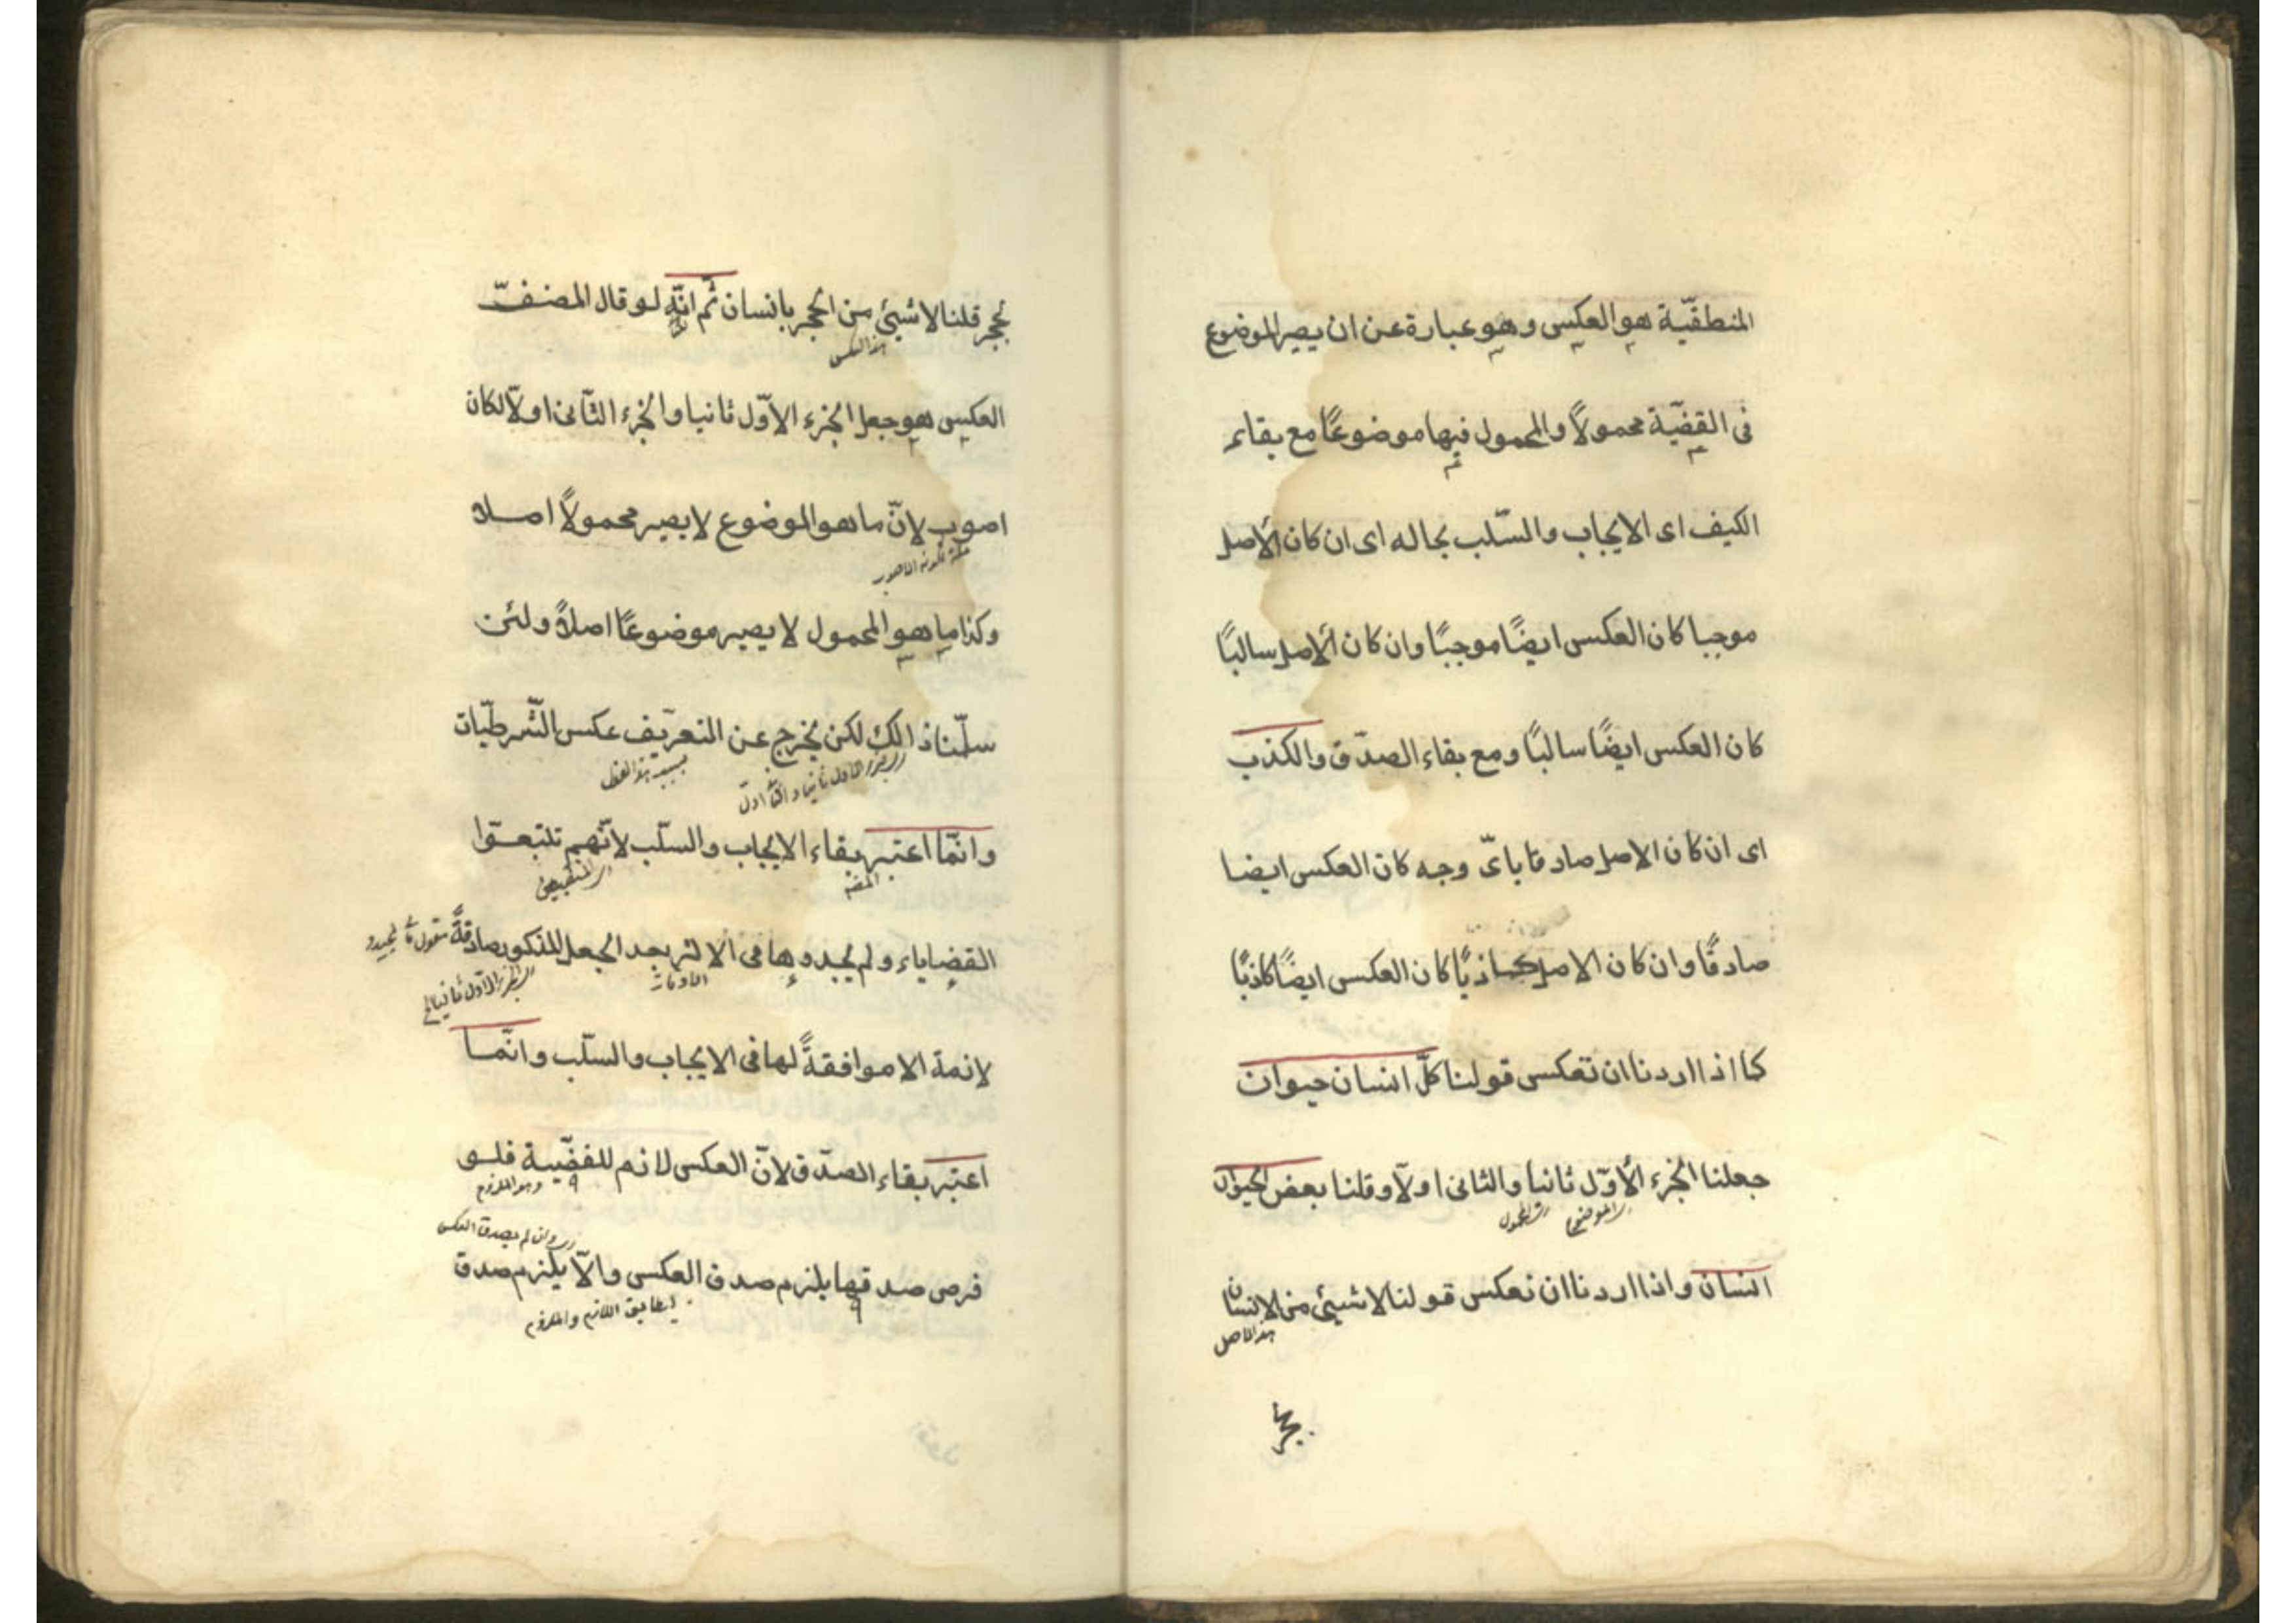 المنطقيّة هو العكس وهو عبارة عن ان يصير الموضوع
فى القضيّة محمولاً والمحمول فيها موضوعًا مع بقاء
الكيف اى الايجاب والسّلب بحاله اى ان كان الأصل
موجبا كان العكس ايضًا موجبًا وان كان الأصل سالبًا
كان العكس ايضًا سالبًا ومع بقاء الصدّق والكذب
اى ان كان الاصل صادقا باىّ وجه كان العكس ايضا
صادقًا وان كان الاصل كاذبًا كان العكس ايضًا كاذبًا
كما اذا اردنا ان تعكس قولنا كلّ انسان حيوان
جعلنا الجزء الأوّل ثانيا والثانى اولاّ وقلنا بعض الحيوان
اى الموضوع اى المحمول
انسان واذا اردنا ان نعكس قولنا لا شيئ من الانسان
هذا الاصل
بحجر
بحجر قلنا لا شيئ من الحجر بانسان ثم انّه لو قال المصنف
هذا العكس
العكس هو جعل الجزء الاوّل ثانيا والجزء الثّانى اولاّ لكان
اصوب لانّ ما هو الموضوع لا يصير محمولاً اصلا
وكذا ما هو المحمول لا يصير موضوعًا اصلاً ولئن
سلّمنا ذالك لكن يخرج عن التعريف عكس الشّرطيّات
اى جزء الاول ثانيا والثا اول
بسبب هذا اللفظ
وانّما اعتبر بقاء الايجاب والسّلب لانّهم تتبعوا
المص
اى المنطقيين
القضاياء ولم يجدوها فى الاكثر بعد الجعل المذكور صادقةً
اى الجزء الاول ثانيا
لازمة الا موافقةً لها فى الايجاب والسّلب وانّما
اعتبر بقاء الصدّق لانّ العكس لازم للقضّية فلو
وهو الملزوم
اى وان لم يصدق العكس
فرض صدقها يلزم صدق العكس والاّ يلزم صدق
لتطابق اللازم والملزوم